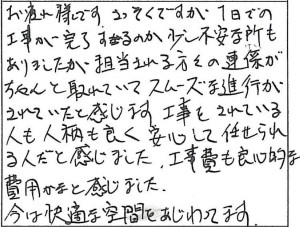 お疲れ様です。さっそくですが、1日での
工事が完了するのか少し不安な所も
ありましたが担当される方々の連係が
ちゃんと取れていてスムーズな進行が
されていたと感じます。工事をされている
人も人柄も良く安心して任せられ
る人だと感じました。工事費も良心的な
費用かなと感じました。
今は快適な空間をあじわってます。